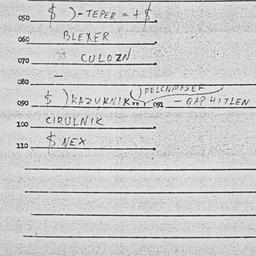 050 $ )-TEPER = + $
060 BLEKER
070 CULOZN
080 —
090 $ ) KAZURNIK
PELCNMAXER
091 - GAP HITLEN
100 CIRULNIK
110 $ NEX